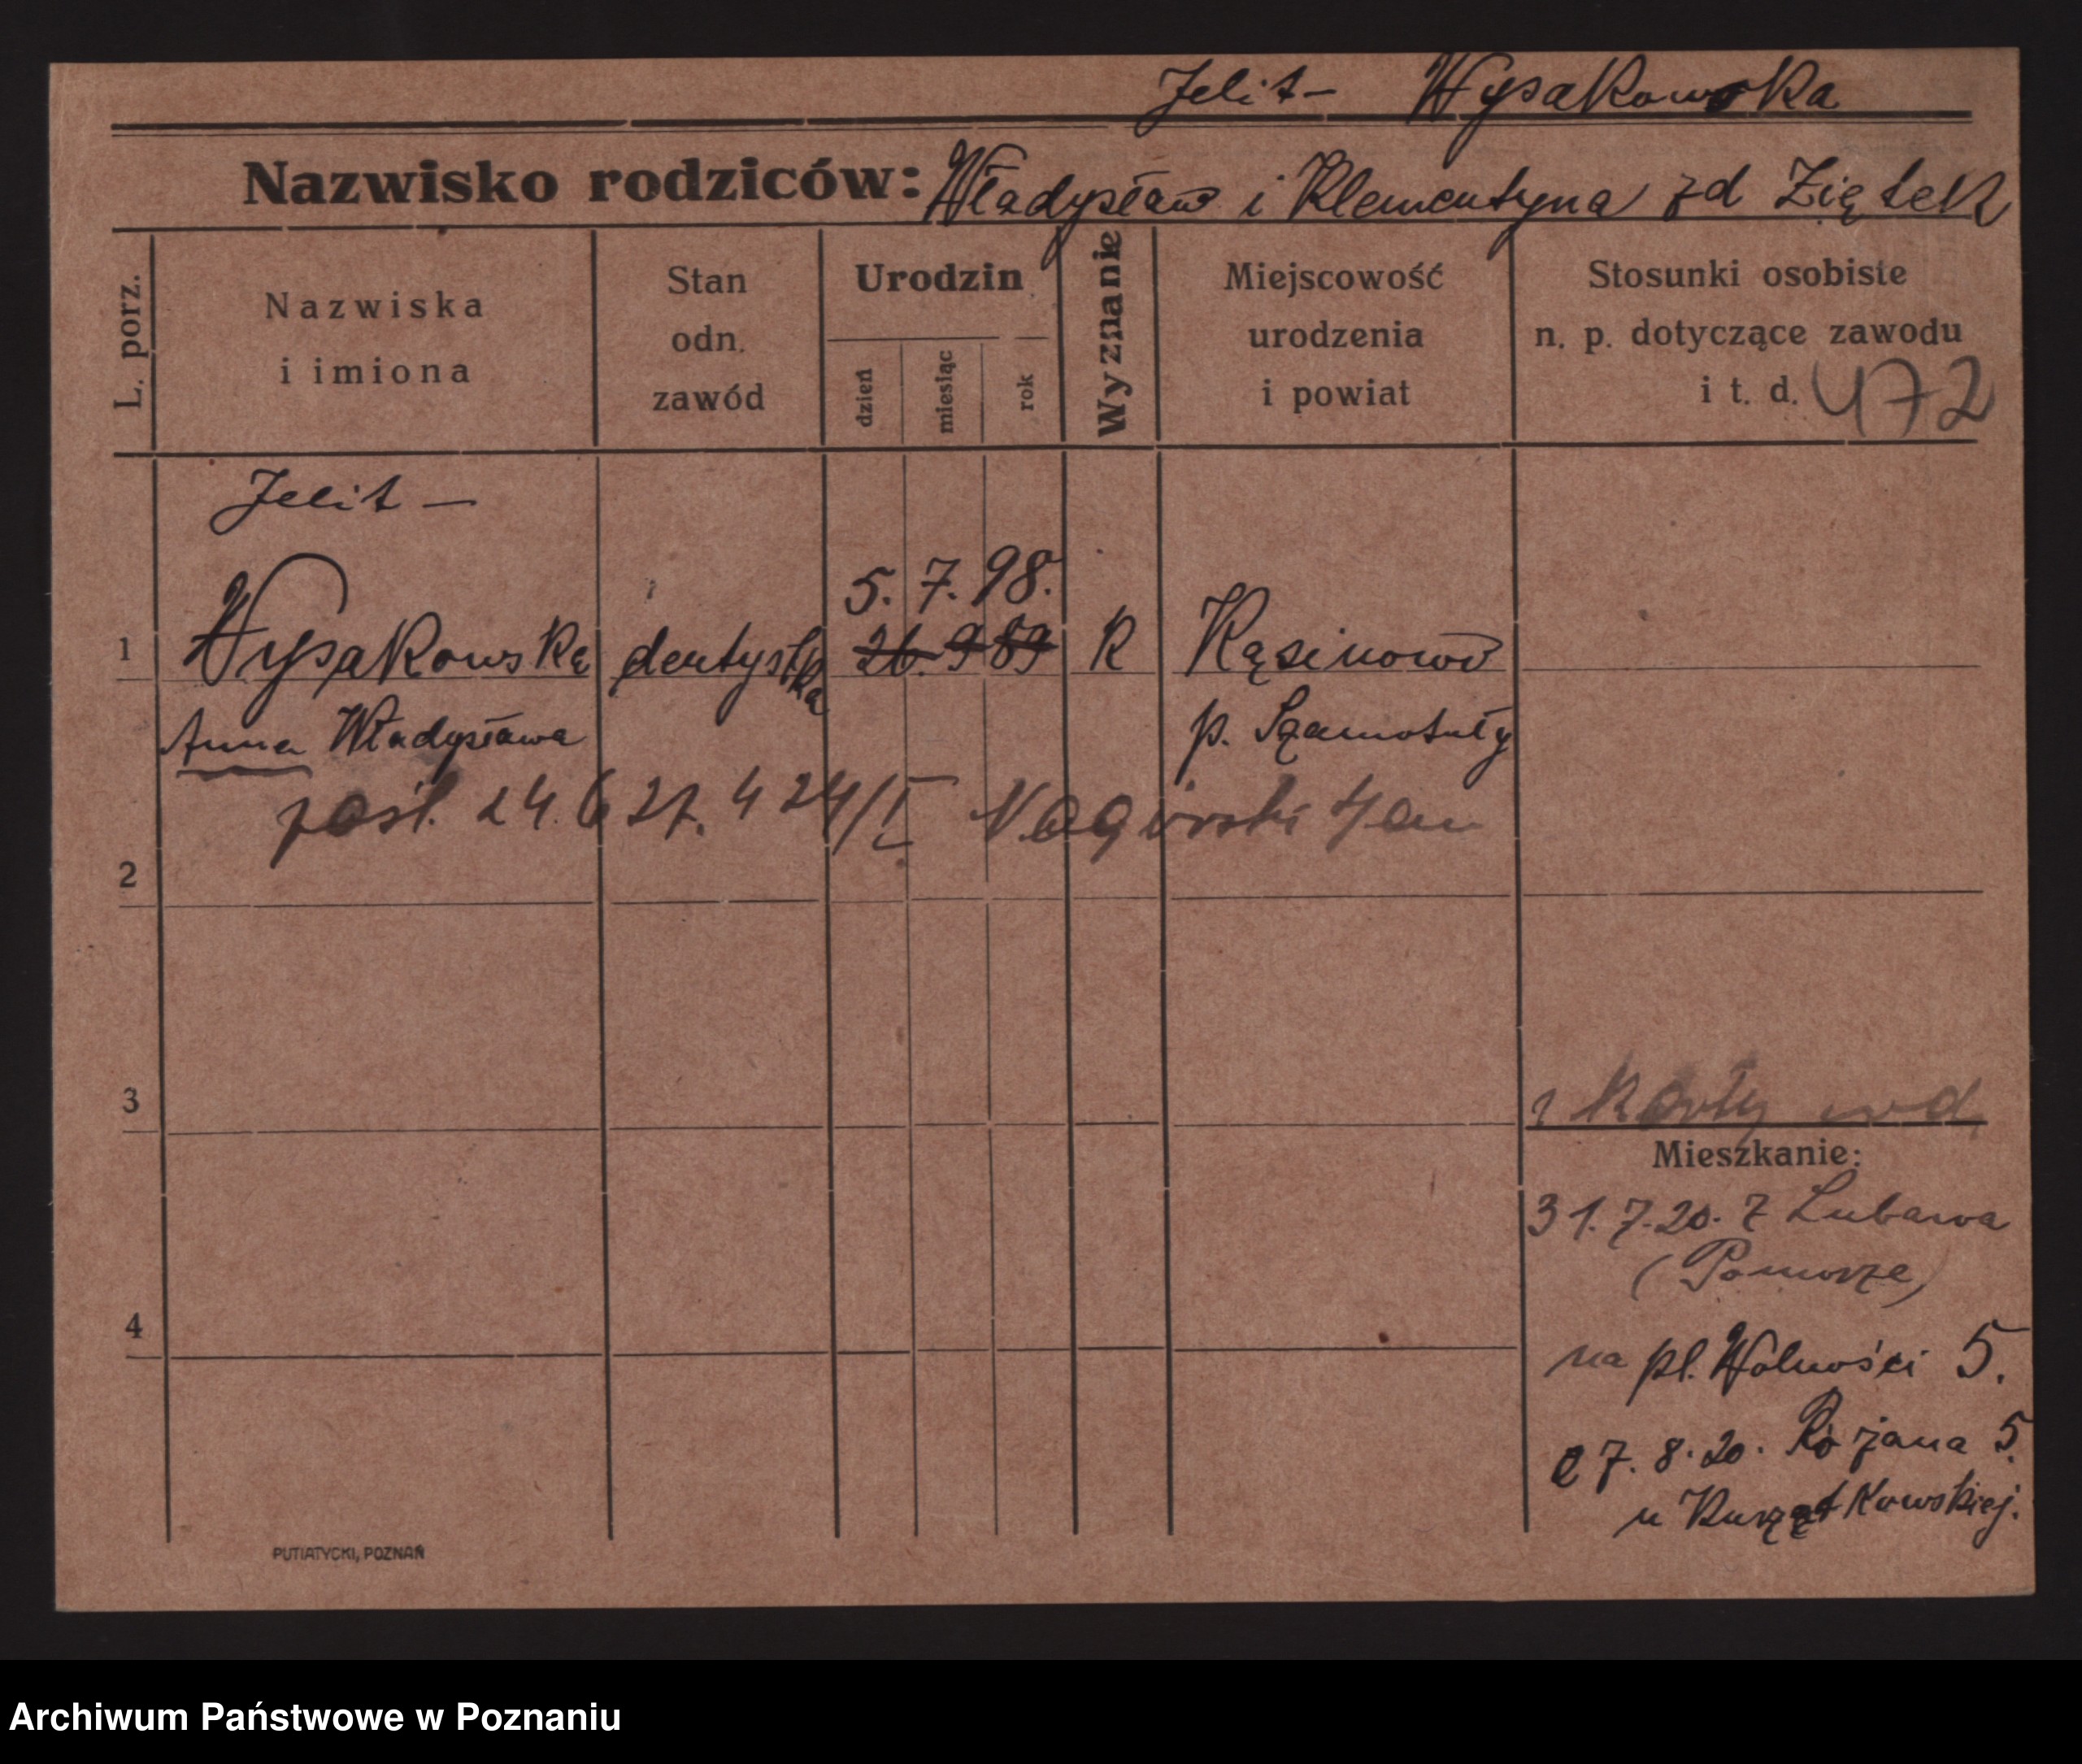 Jelit - Wysakowska
Nazwisko rodziców: Władysław i Klementyna zd Ziętek
L. porz.
Nazwiska
i imiona
Stan
odn.
zawód
Urodzin
dzień
miesiąc
rok
Wyznanie
Miejscowość
urodzenia
i powiat
Stosunki osobiste
n. p. dotyczące zawodu
i t. d. 472
Jelit -
5. 7. 98.
1 Wysakowska dentystka 26. 9 89 K Kąsinowo
Anna Władysława p. Szamotuły
pośl. 24. 6 27. 424/I Nagórski Jan
2
3
karty
Mieszkanie:
31. 7. 20. z Lubawa
(Pomorze)
4
na pl. Wolności 5.
27. 8. 20. 5.
u Kurzętkowskiej.
PUTIATYCKI, POZNAŃ
Archiwum Państwowe w Poznaniu